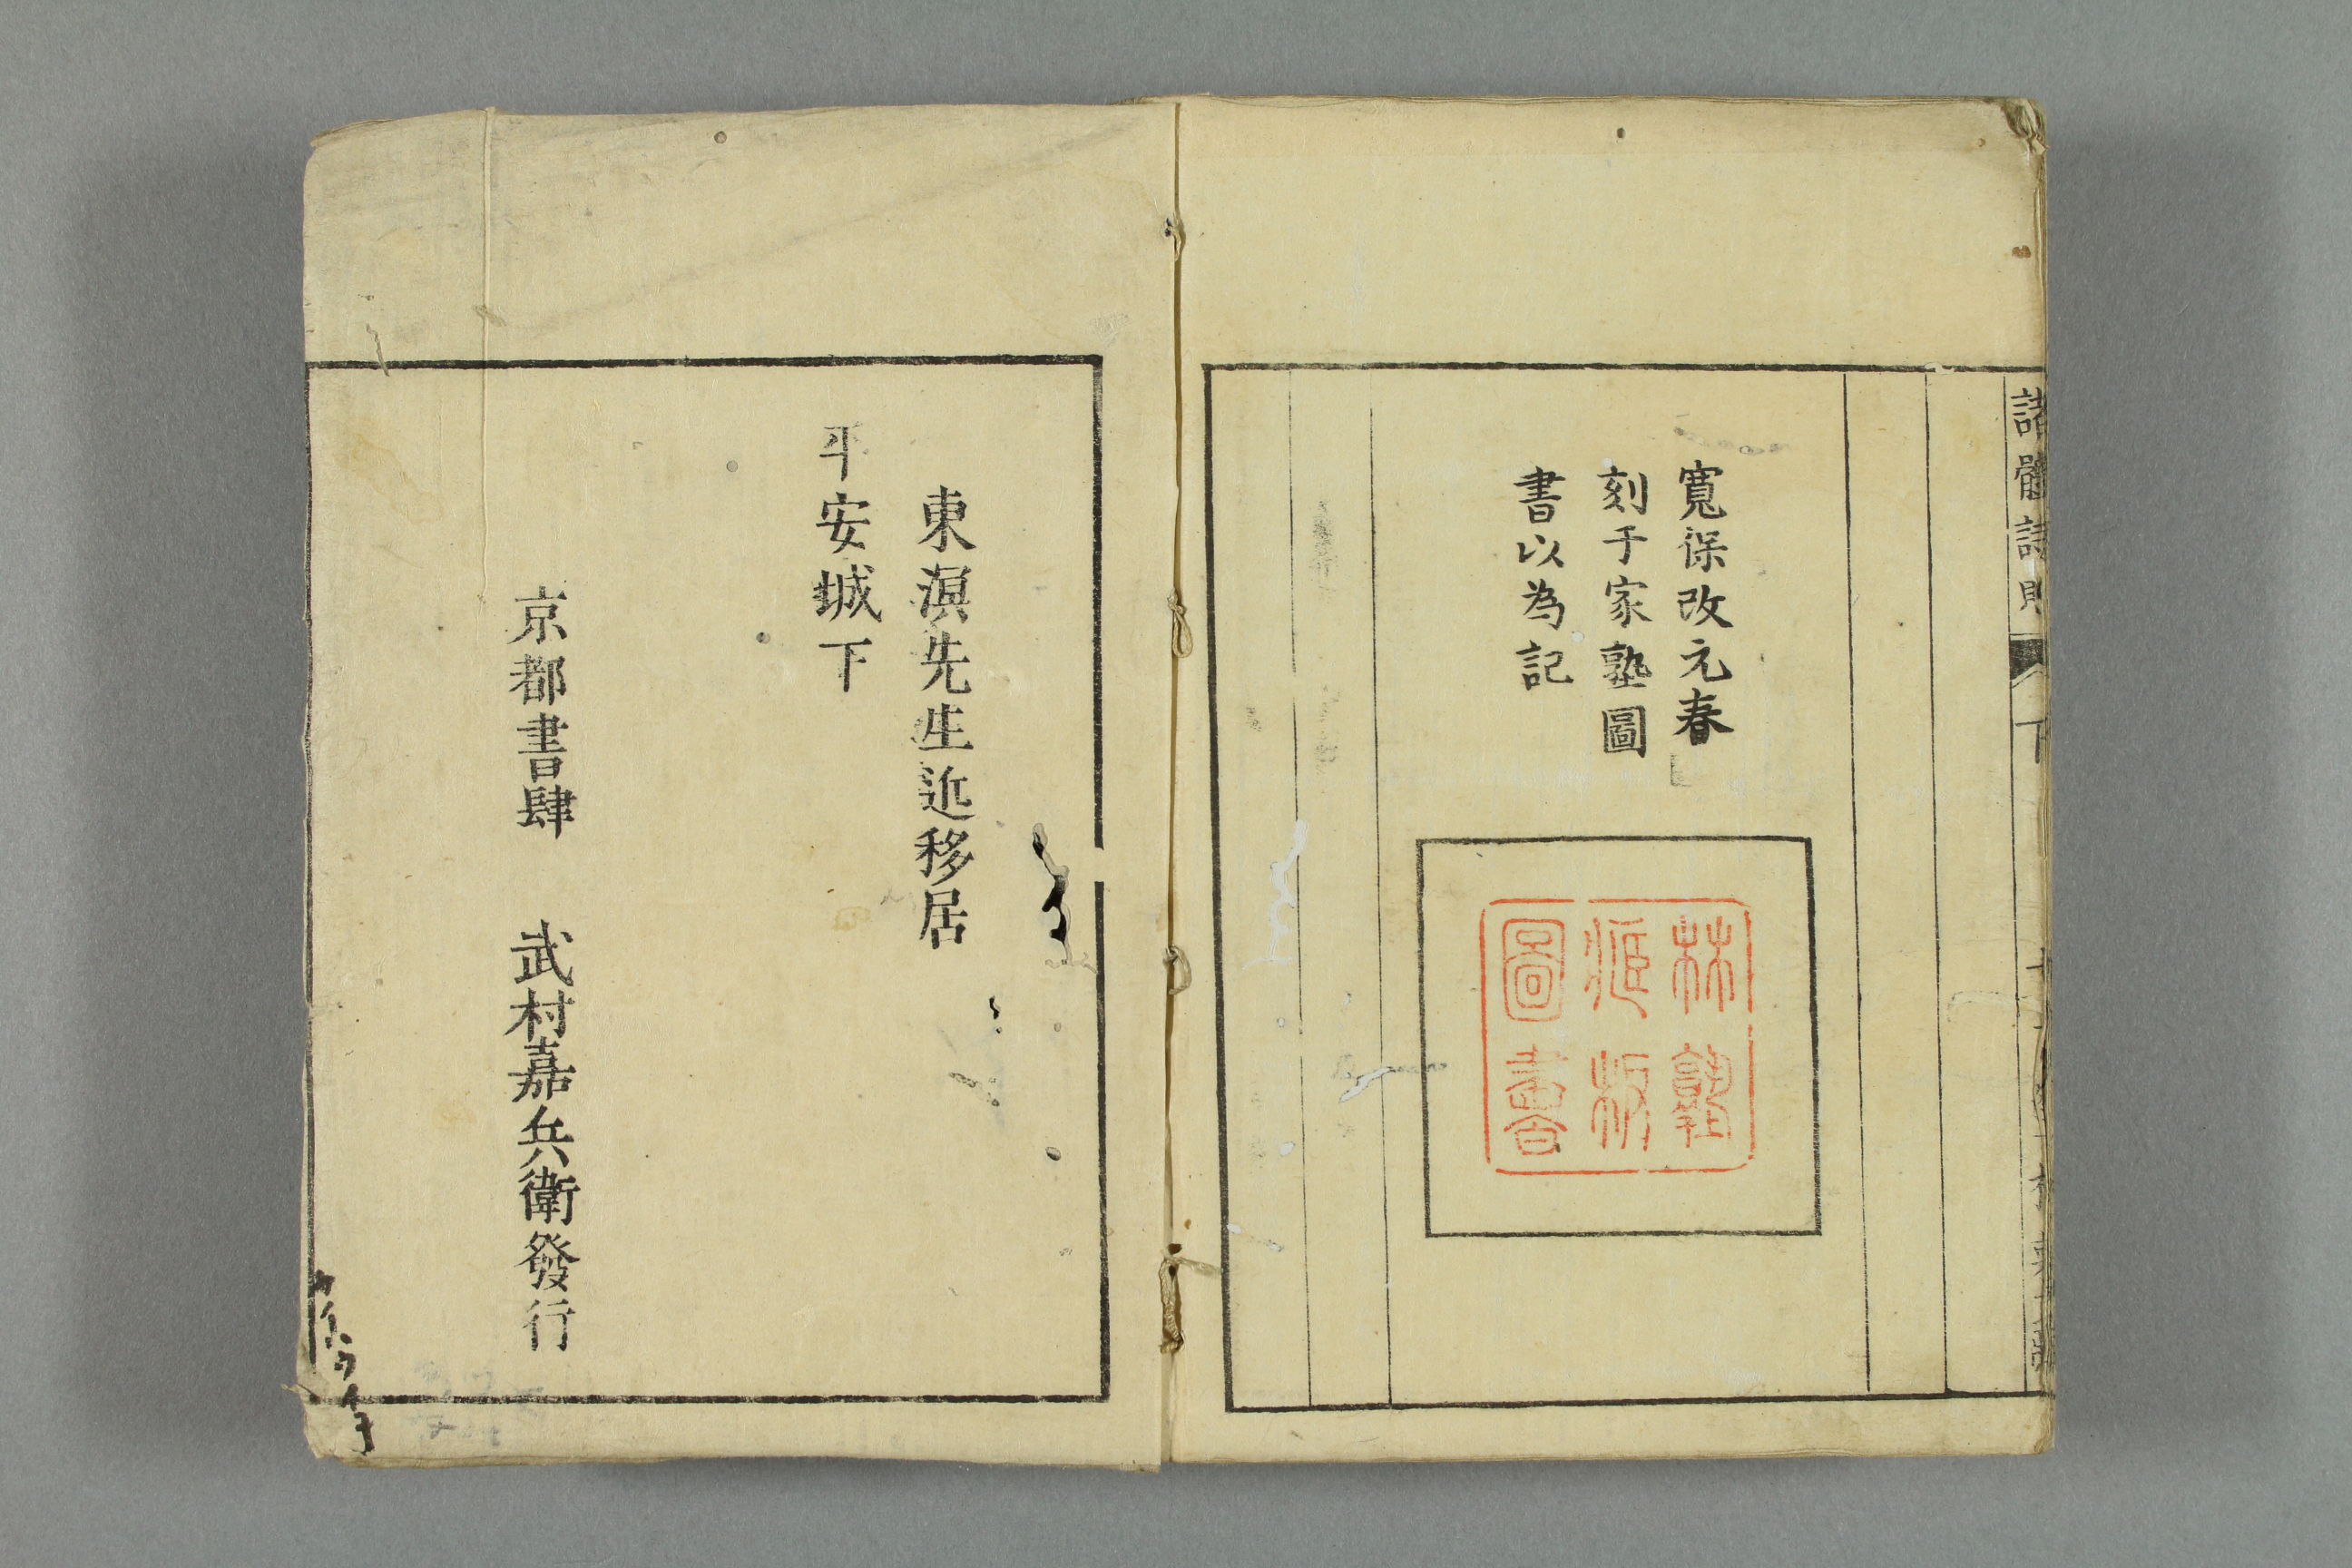 諸體詩則
下
寬保改元春
刻于家塾圖
書以為記
林塾
藏板
圖書
東溟先生近移居
平安城下
京都書肆 武村嘉兵衛發行